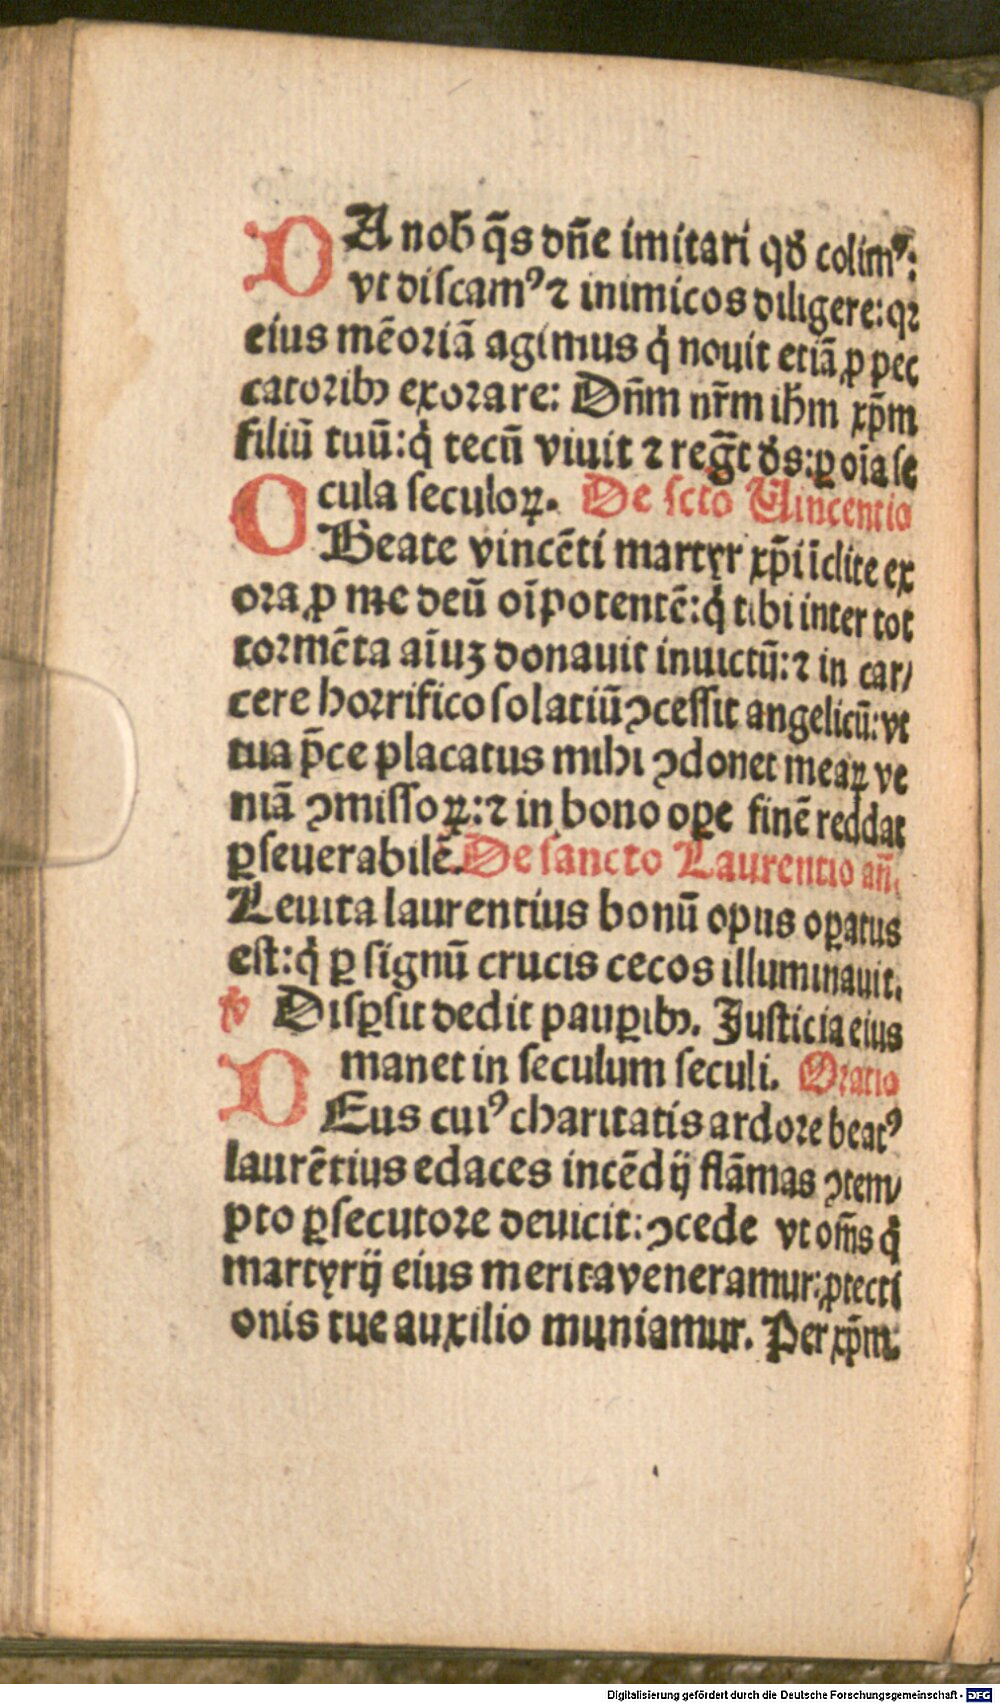 DA nob̄ q̄s dn̄e imitari qď colimꝰ:
vt discamꝰ ⁊ inimicos diligere: qꝛ
eius mẽoriã agimus q̇ nouit etiã ꝓ pec
catoribꝫ exorare: Dn̄m nr̄m ih̄m xp̄m
filiũ tuũ: q̇ tecũ viuit ⁊ regt̄ ďs: ꝑ oĩa se
cula seculoꝝ. De scto Vincentio
O Beate vincẽti martyr xp̄i ĩclite ex
ora ꝓ me deũ oĩpotentẽ: q̇ tibi inter tot
tormẽta aĩuꝫ donauit inuictũ: ⁊ in car/
cere horrifico solatiũ ꝯcessit angelicũ: vt
tua p̄ce placatus mihi ꝯdonet meaꝝ ve
niã ꝯmissoꝝ: ⁊ in bono oꝑe finẽ reddat
ꝑseuerabilẽ. De sancto Laurentio añ.
Leuita laurentius bonũ opus oꝑatus
est: q̇ ꝑ signũ crucis cecos illuminauit.
℣ Disꝑsit dedit pauꝑibꝫ. Justicia eius
manet in seculum seculi. Oratio
DEus cuiꝰ charitatis ardore beatꝰ
laurẽtius edaces incẽdij flãmas ꝯtem/
pto ꝑsecutore deuicit: ꝯcede vt om̄s q̇
martyrij eius merita veneramur: ꝓtecti
onis tue auxilio muniamur. Per xp̄m.
Digitalisierung gefördert durch die Deutsche Forschungsgemeinschaft - DFG